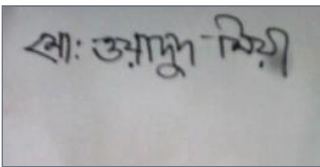 মো: ওয়াদুদ মিয়া